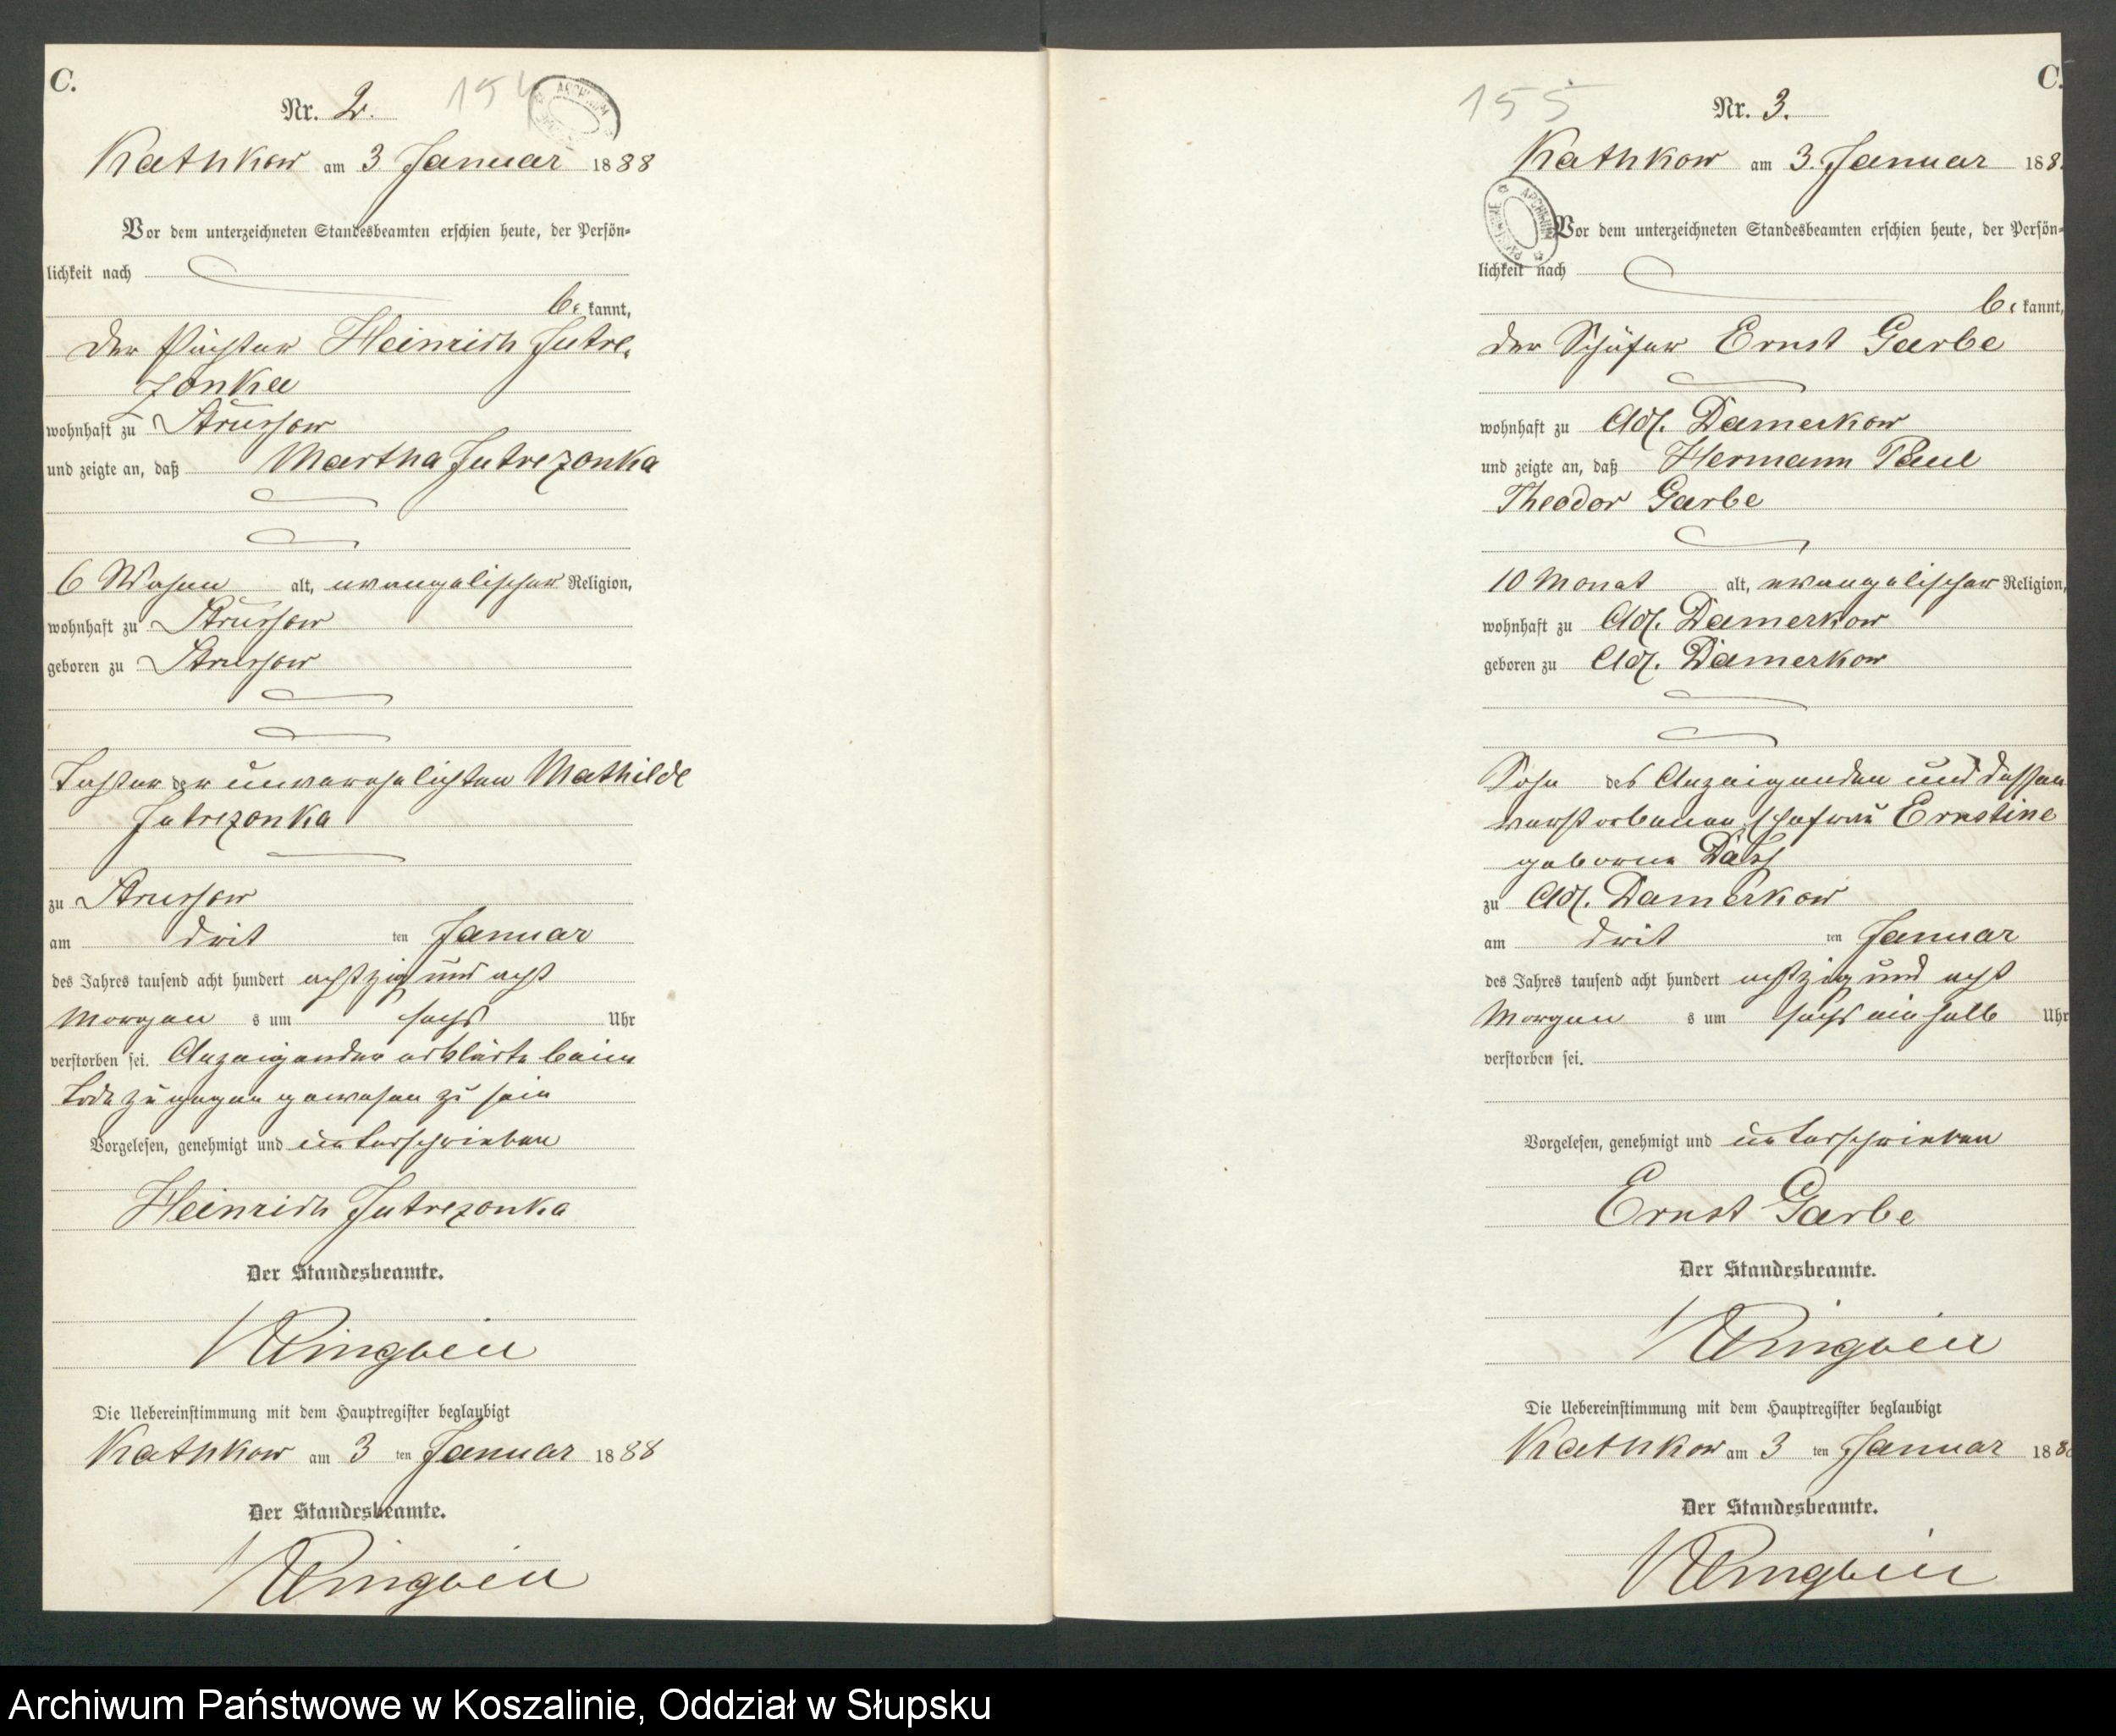 C.
Nr. 2.
154
ARCHIWUM
Kathkow am 3 Januar 1888
Vor dem unterzeichneten Standesbeamten erschien heute, der Persön-
lichkeit nach
be kannt,
der Pächter Heinrich Jutre-
zonka
wohnhaft zu Strussow
und zeigte an, daß Martha Jutrezonka
6 Wochen alt, evangelischer Religion,
wohnhaft zu Strussow
geboren zu Strussow
Tochter der unverehelichten Mathilde
Jutrezonka
zu Strussow
am drit ten Januar
des Jahres tausend acht hundert achtzig und acht
Morgen s um sechs Uhr
verstorben sei. Anzeigender erklärte beim
Tode zugegen gewesen zu sein
Vorgelesen, genehmigt und unterschrieben
Heinrich Jutrezonka
Der Standesbeamte.
Die Uebereinstimmung mit dem Hauptregister beglaubigt
Kathkow am 3 ten Januar 1888
Der Standesbeamte.
C.
155
Nr. 3.
Kathkow am 3. Januar 188
ARCHIWUM PAŃSTWOWE
Vor dem unterzeichneten Standesbeamten erschien heute, der Persön-
lichkeit nach
be kannt,
der Schäfer Ernst Garbe
wohnhaft zu Adl. Damerkow
und zeigte an, daß Hermann Paul
Theodor Garbe
10 Monat alt, evangelischer Religion,
wohnhaft zu Adl. Damerkow
geboren zu Adl. Damerkow
Sohn des Anzeigenden und dessen
verstorbenen Ehefrau Ernstine
geborne
zu Adl. Damerkow
am drit ten Januar
des Jahres tausend acht hundert achtzig und acht
Morgen s um sechs ein halb Uhr
verstorben sei.
Vorgelesen, genehmigt und unterschrieben
Ernst Garbe
Der Standesbeamte.
Die Uebereinstimmung mit dem Hauptregister beglaubigt
Kathkow am 3 ten Januar 188
Der Standesbeamte.
Archiwum Państwowe w Koszalinie, Oddział w Słupsku